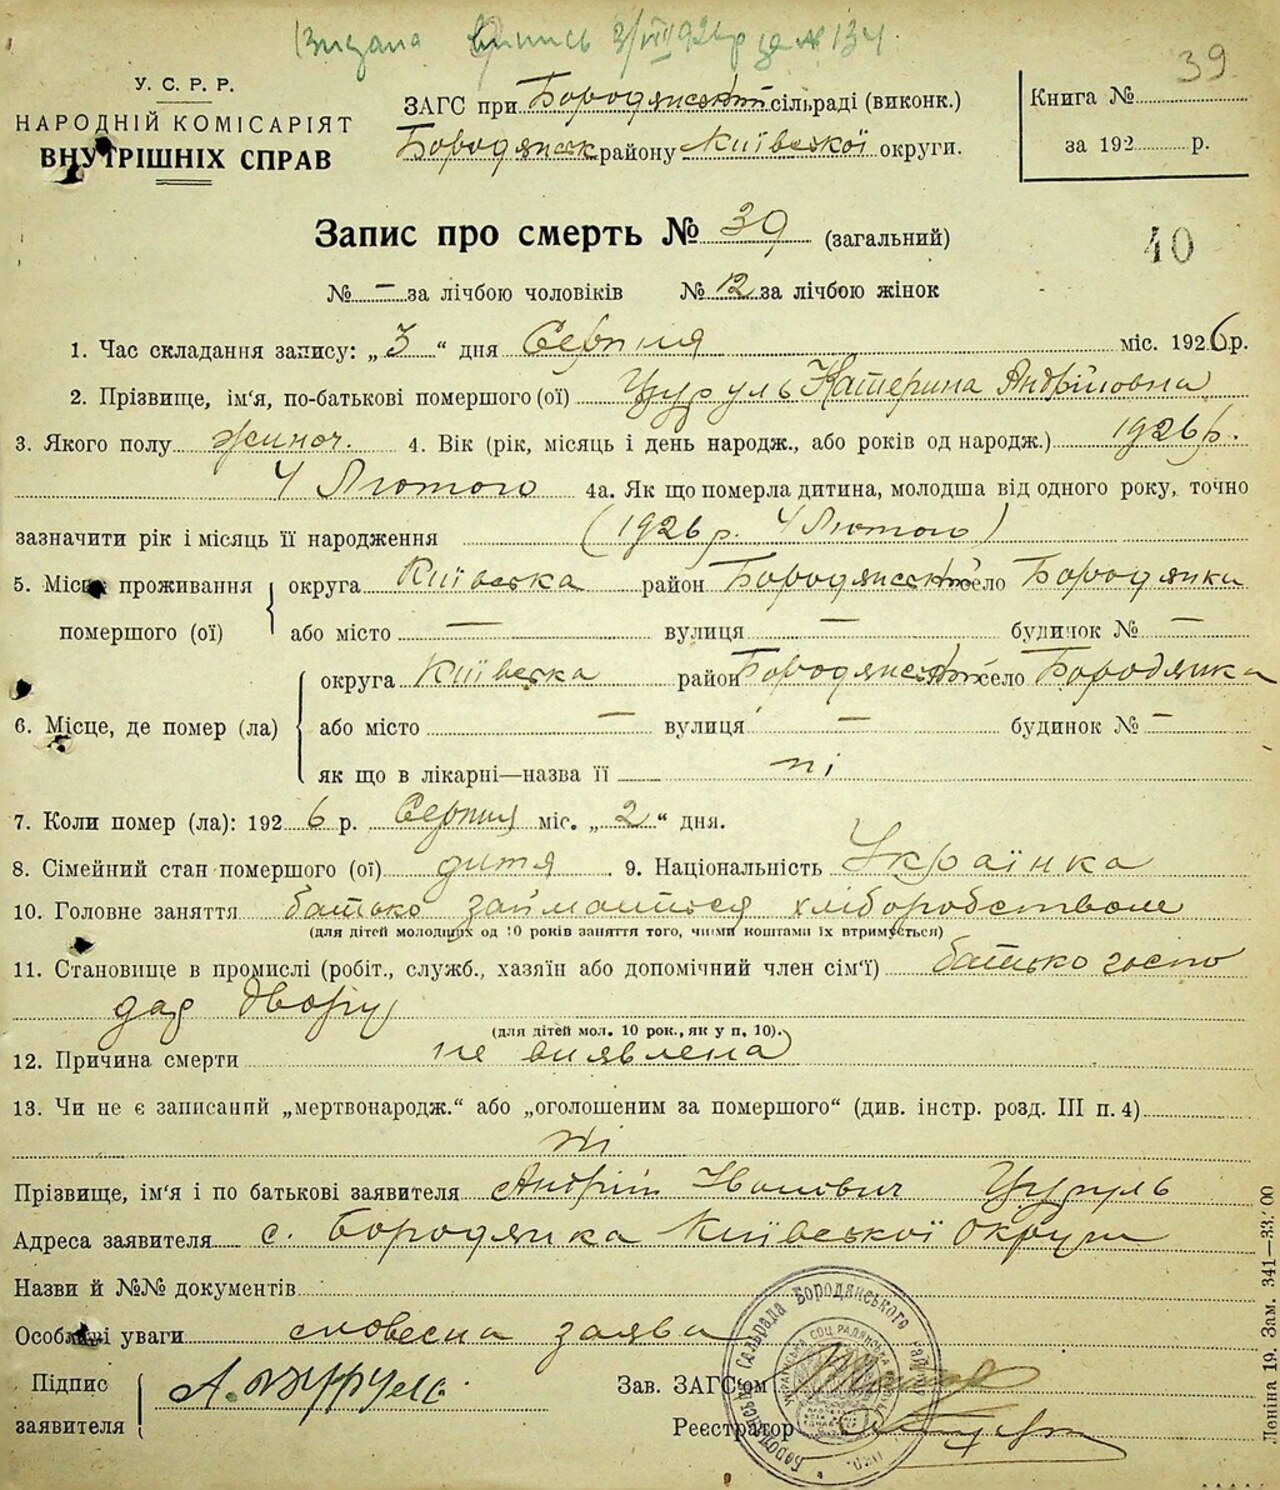 Видана випись 3/VIII 1926 р за № 134.
39
У. С. Р. Р.
НАРОДНІЙ КОМІСАРІЯТ
ВНУТРІШНІХ СПРАВ
ЗАГС при Бородянській сільраді (виконк.)
Бородянськ району Київської округи.
Книга №
за 192 р.
Запис про смерть № 39 (загальний)
40
№ — за лічбою чоловіків № 12 за лічбою жінок
1. Час складання запису: „3“ дня Серпня міс. 1926 р.
2. Прізвище, ім‘я, по-батькові помершого (ої) Цуруль Катерина Андрійовна
3. Якого полу жиноч. 4. Вік (рік, місяць і день народж., або років од народж.) 1926 р.
4 Лютого 4а. Як що померла дитина, молодша від одного року, точно
зазначити рік і місяць її народження (1926 р. 4 Лютого)
5. Місце проживання помершого (ої)
округа Київська район Бородянський село Бородянки
або місто — вулиця — будинок № —
6. Місце, де помер (ла)
округа Київська район Бородянський село Бородянка
або місто — вулиця — будинок № —
як що в лікарні—назва її ні
7. Коли помер (ла): 1926 р. Серпня міс. „2“ дня.
8. Сімейний стан помершого (ої) дитя 9. Національність Українка
10. Головне заняття батько займается хліборобством
(для дітей молодших од 10 років заняття того, чиїми коштами їх втримується)
11. Становище в промислі (робіт., служб., хазяїн або допомічний член сім‘ї) батько госпо
дар двору
(для дітей мол. 10 рок., як у п. 10).
12. Причина смерти не виявлена
13. Чи не є записаний „мертвонародж.“ або „оголошеним за помершого“ (див. інстр. розд. III п. 4)
ні
Прізвище, ім‘я і по батькові заявителя Андрій Іванович Цуруль
Адреса заявителя с. Бородянка Київської Округи
Назви й №№ документів
Особливі уваги словесна заява
Підпис заявителя А. Цуруль
Зав. ЗАГС'ом
Реєстратор
Сельрада Бородянського
Леніна 19. Зам. 341—33.